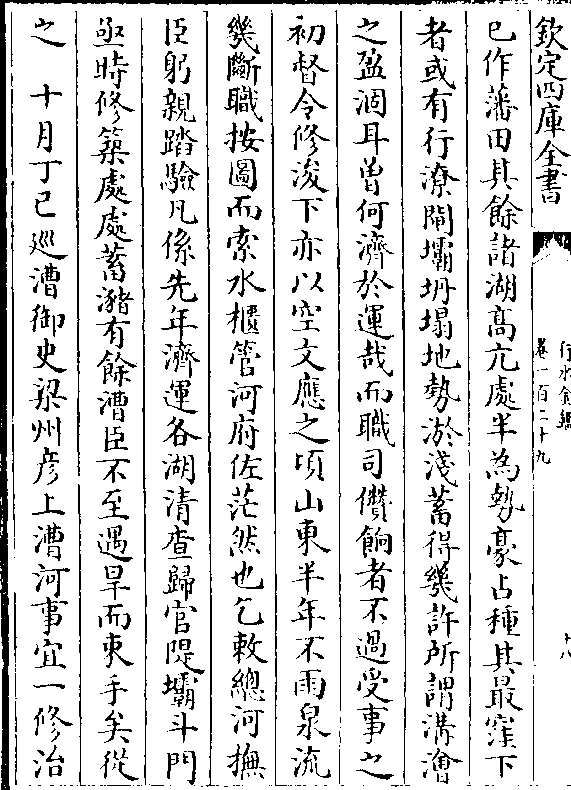 欽定四庫全書
行水金鑑
卷一百二十九
十八
已作藩田其餘諸湖髙亢處半為勢豪占種其最窪下
者或有行潦閘壩坍塌地勢淤淺蓄得幾許所謂溝澮
之盈涸耳曽何濟於運哉而職司儹餉者不過受事之
初督令修浚下亦以空文應之項山東半年不雨泉流
幾斷職按圖而索水櫃管河府佐茫然也乞敕總河撫
臣躬親踏驗凡係先年濟運各湖清查歸官隄壩斗門
亟時修築處處蓄瀦有餘漕臣不至遇旱而束手矣從
之　十月丁已廵漕御史梁州彦上漕河事宜一修治